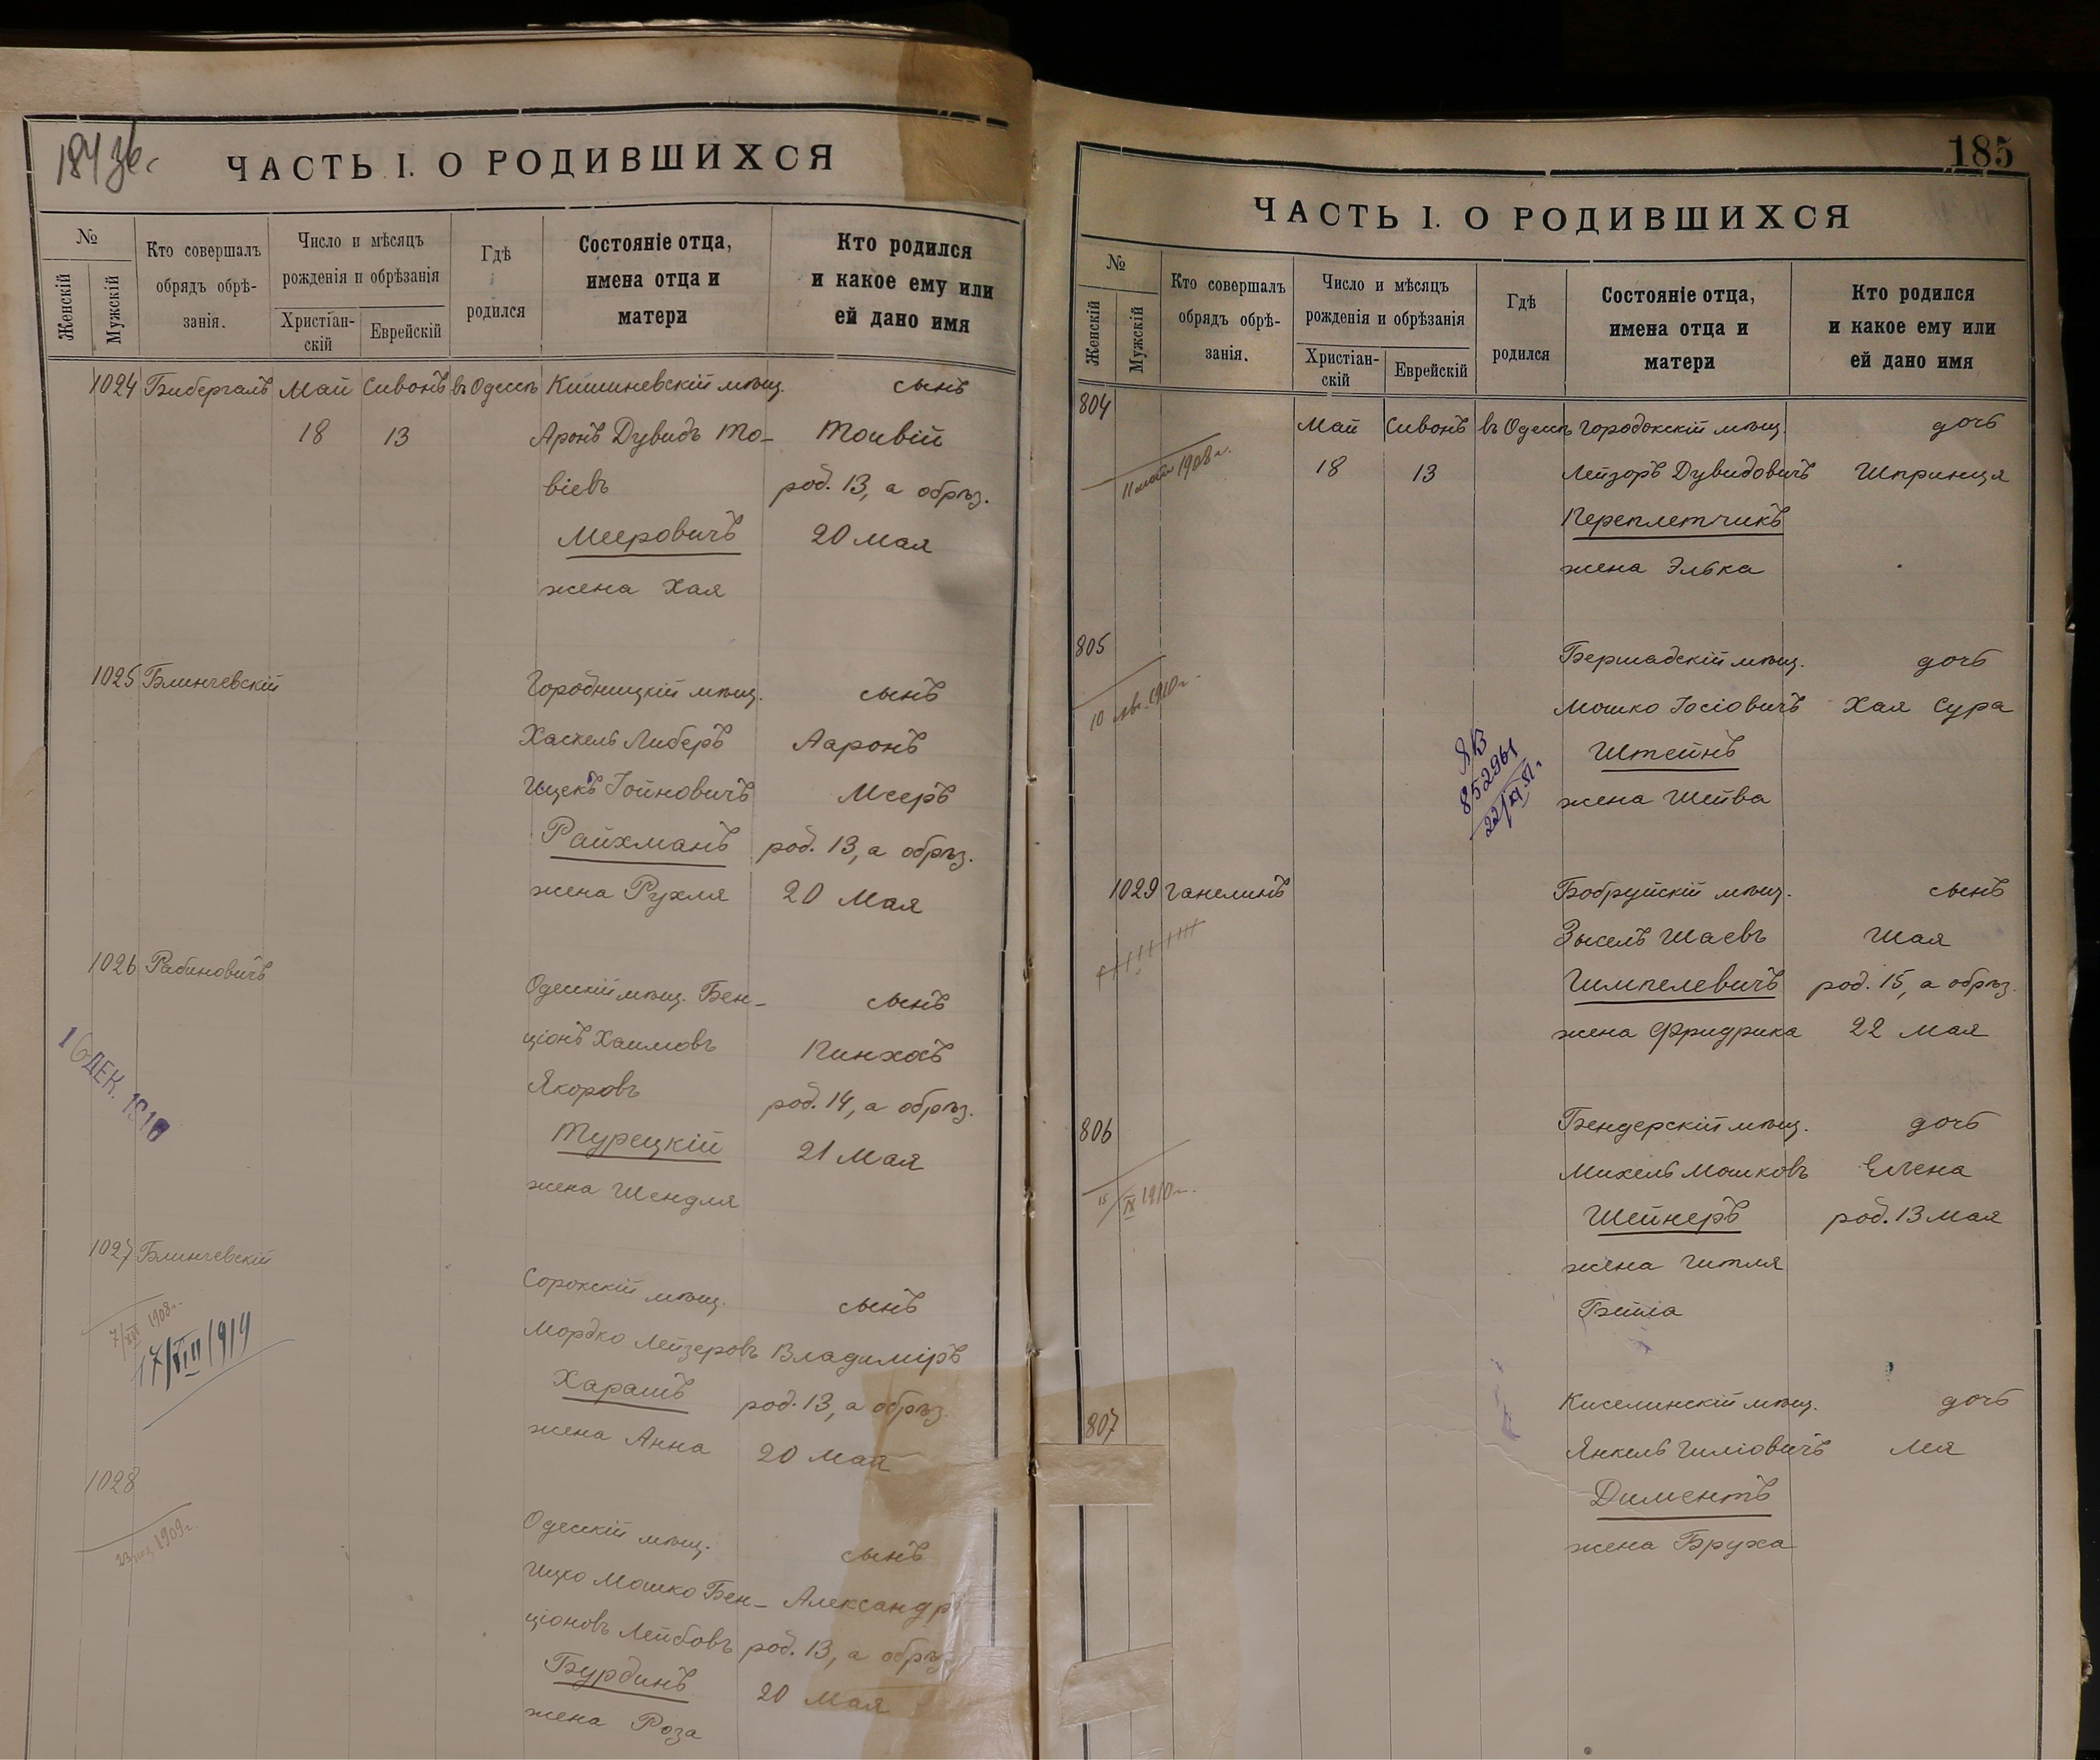 184 зв.
ЧАСТЬ I. О РОДИВШИХСЯ
№
Женскій
Мужскій
Кто совершалъ
обрядъ обрѣ-
занія.
Число и мѣсяцъ
рожденія и обрѣзанія
Христіан-
скій
Еврейскій
Гдѣ
родился
Состояніе отца,
имена отца и
матери
Кто родился
и какое ему или
ей дано имя
1024 Бибергалъ Май Сивонъ въ Одессѣ Кишиневскій мѣщ. сынъ
18 13 Аронъ Дувидъ То- Тоивій
віевъ род. 13, а обрѣз.
Мееровичъ 20 Мая
жена Хая
1025 Блинчевскій Городницкій мѣщ. сынъ
Хаскель Либеръ Ааронъ
Ицекъ Іойновичъ Мееръ
Райхманъ род. 13, а обрѣз.
жена Рухля 20 Мая
1026 Рабиновичъ Одесскій мѣщ. Бен- сынъ
ціонъ Хаимовъ Пинхасъ
Якоровъ род. 14, а обрѣз.
16 ДЕК. 1916
Турецкій 21 Мая
жена Шендля
1027 Блинчевскій Сорокскій мѣщ. сынъ
7/XII 1908 г.
17/VIII 1919
Мордко Лейзеровъ Владиміръ
Харашъ род. 13, а обрѣз.
жена Анна 20 Мая
1028 Одесскій мѣщ. сынъ
1909 г.
Ицко Мошко Бен- Александръ
ціоновъ Лейбовъ род. 13, а обрѣз.
Бурдинъ 20 Мая
жена Роза
185
ЧАСТЬ I. О РОДИВШИХСЯ
№
Женскій
Мужскій
Кто совершалъ
обрядъ обрѣ-
занія.
Число и мѣсяцъ
рожденія и обрѣзанія
Христіан-
скій
Еврейскій
Гдѣ
родился
Состояніе отца,
имена отца и
матери
Кто родился
и какое ему или
ей дано имя
804 Май Сивонъ въ Одессѣ Городокскій мѣщ. дочь
1908 г.
18 13 Лейзоръ Дувидовичъ Шпринця
Переплетчикъ
жена Элька
805 Бершадскій мѣщ. дочь
10 авг. 1910 г.
Мошко Іосіовичъ Хая Сура
ЯВ
852961
22/XI 51 г.
Штейнъ
жена Шейва
1029 Ганелинъ Бобруйскій мѣщ. сынъ
Зыселъ Шаевъ Шая
Гимпелевичъ род. 15, а обрѣз.
жена Фридрика 22 Мая
806 Бендерскій мѣщ. дочь
Михель Мошковъ Елена
15/IX 1910 г.
Шейнеръ род. 13 Мая
жена Гитля
Бейла
807 Киселинскій мѣщ. дочь
Янкель Гиліовичъ Лея
Диментъ
жена Бруха